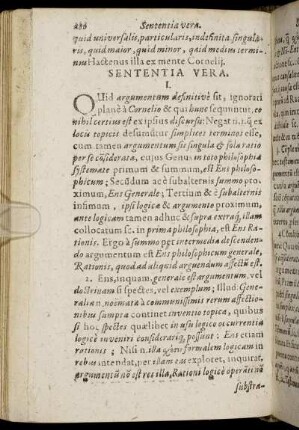 286 Sententia vera.
quid universalis, particularis, indefinita singula-
ris, quid maior, quid minor, quid medius termi-
nus. Hactenus illa ex mente Cornelij.
SENTENTIA VERA.
I.
QUid argumentum definitivè sit, ignorari
planè à Cornelio & qui hunc sequuntur, et
nihil certius est ex ipsius discursu: Negat n. ex
locis topicis desumitur simplices termini esse,
cum tamen argumentum sit singula & sola ratio
per se cõsiderata, cujus Genus in toto philosophia
systemate primum & summum, est Ens philoso-
phicum; Secũdum ac è subalternis summo pro-
ximum, Ens Generale; Tertium & è subalternis
infimum, ipsi logicæ & argumento proximum,
ante logicam tamen adhuc & supra extraq; illam
collocatum sc. in prima philosophia, est Ens Ra-
tionis. Ergo à summo per intermedia descenden-
do argumentum est Ens philosophicum generale,
Rationis, quod ad aliquid arguendum affectũ est.
2. Ens, inquam, generale est argumentum, vel
doctrinam si spectes, vel exemplum; Illud Gene-
ralia n, nomata à communissimis rerum affectio-
nibus sumpta continet inventio topica, quibus
si hoc spectes quælibet in usu logico occurrentia
logicè inveniri considerariq; possunt: Ens etiam
rationis; Nisi n. illa formalem logicam in
rebus intendat, per illam eas exploret, inquirat,
argumentũ nõ est rec illa, Rationi logicè operãti nõ
substra-